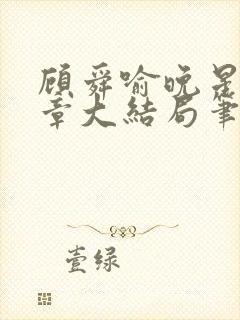 顾舜喻晚晟
章大结局笔
壹绿